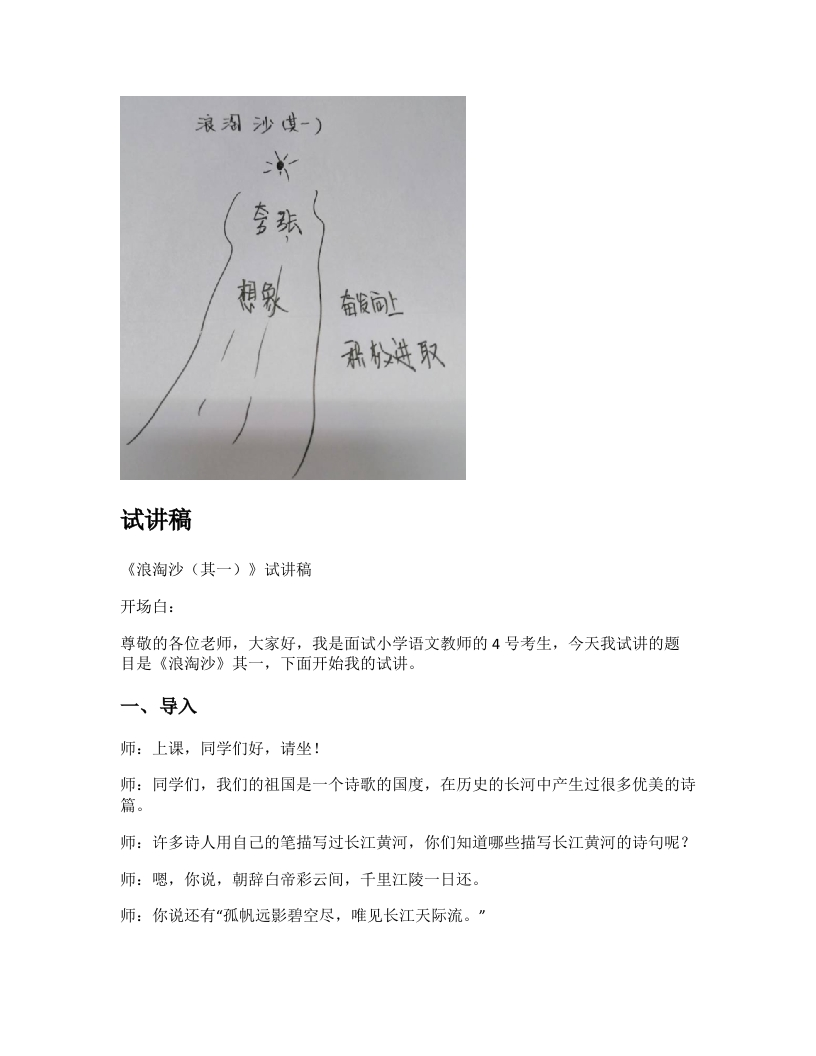 浪淘沙(其一)
夸张
想象
奋发向上
积极进取
试讲稿
《浪淘沙（其一）》试讲稿
开场白：
尊敬的各位老师，大家好，我是面试小学语文教师的 4 号考生，今天我试讲的题
目是《浪淘沙》其一，下面开始我的试讲。
一、导入
师：上课，同学们好，请坐！
师：同学们，我们的祖国是一个诗歌的国度，在历史的长河中产生过很多优美的诗
篇。
师：许多诗人用自己的笔描写过长江黄河，你们知道哪些描写长江黄河的诗句呢？
师：嗯，你说，朝辞白帝彩云间，千里江陵一日还。
师：你说还有“孤帆远影碧空尽，唯见长江天际流。”